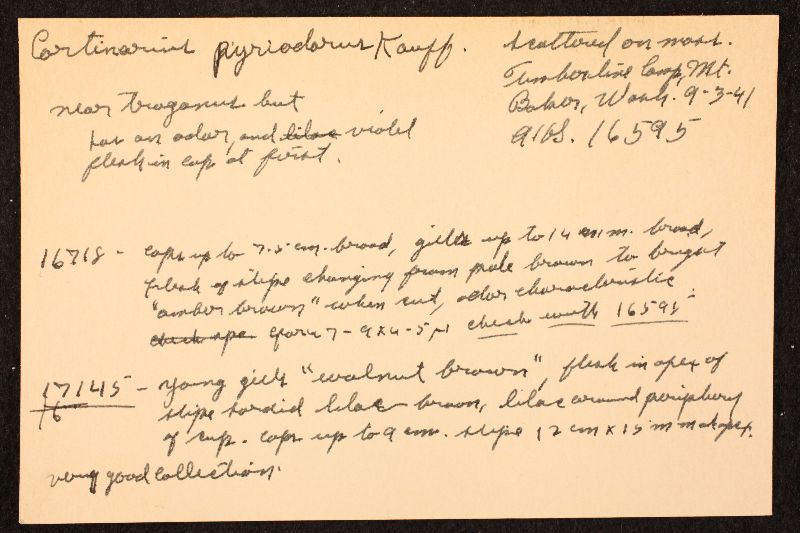 Cortinarius pyriodorus Kauff.
scattered on moss.
Timberline Camp, Mt.
Baker, Wash. 9-3-41
AHS. 16595
near traganus but
for an odor, and lilac violet
flesh in cap at first.
16718 - caps up to 7.5 cm. broad, gills up to 14 mm. broad,
flesh of stipe changing from pale brown to bright
"amber brown" when cut, odor characteristic.
check spore spores 7-9x4-5µ check with 16595
17145 - young gills "walnut brown", flesh in apex of
16 stipe sordid lilac brown, lilac around periphery
of cap. caps up to 9 cm. stipe 12 cm x 15 mm at apex.
very good collection.